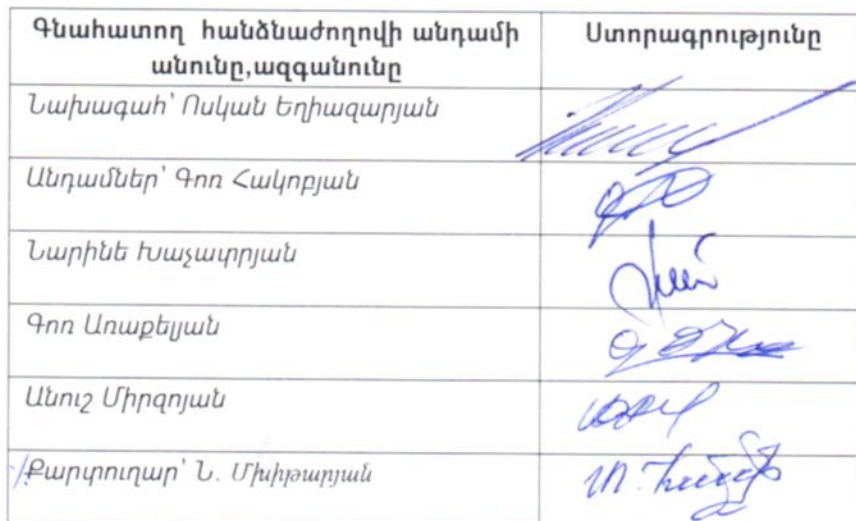 Գնահատող հանձնաժողովի անդամի
անունը,ազգանունը
Ստորագրությունը
Նախագահ՝ Ոսկան Եղիազարյան
Անդամներ՝ Գոռ Հակոբյան
Նարինե Խաչատրյան
Գոռ Առաքելյան
Անուշ Միրզոյան
Քարտուղար՝ Ն. Մխիթարյան